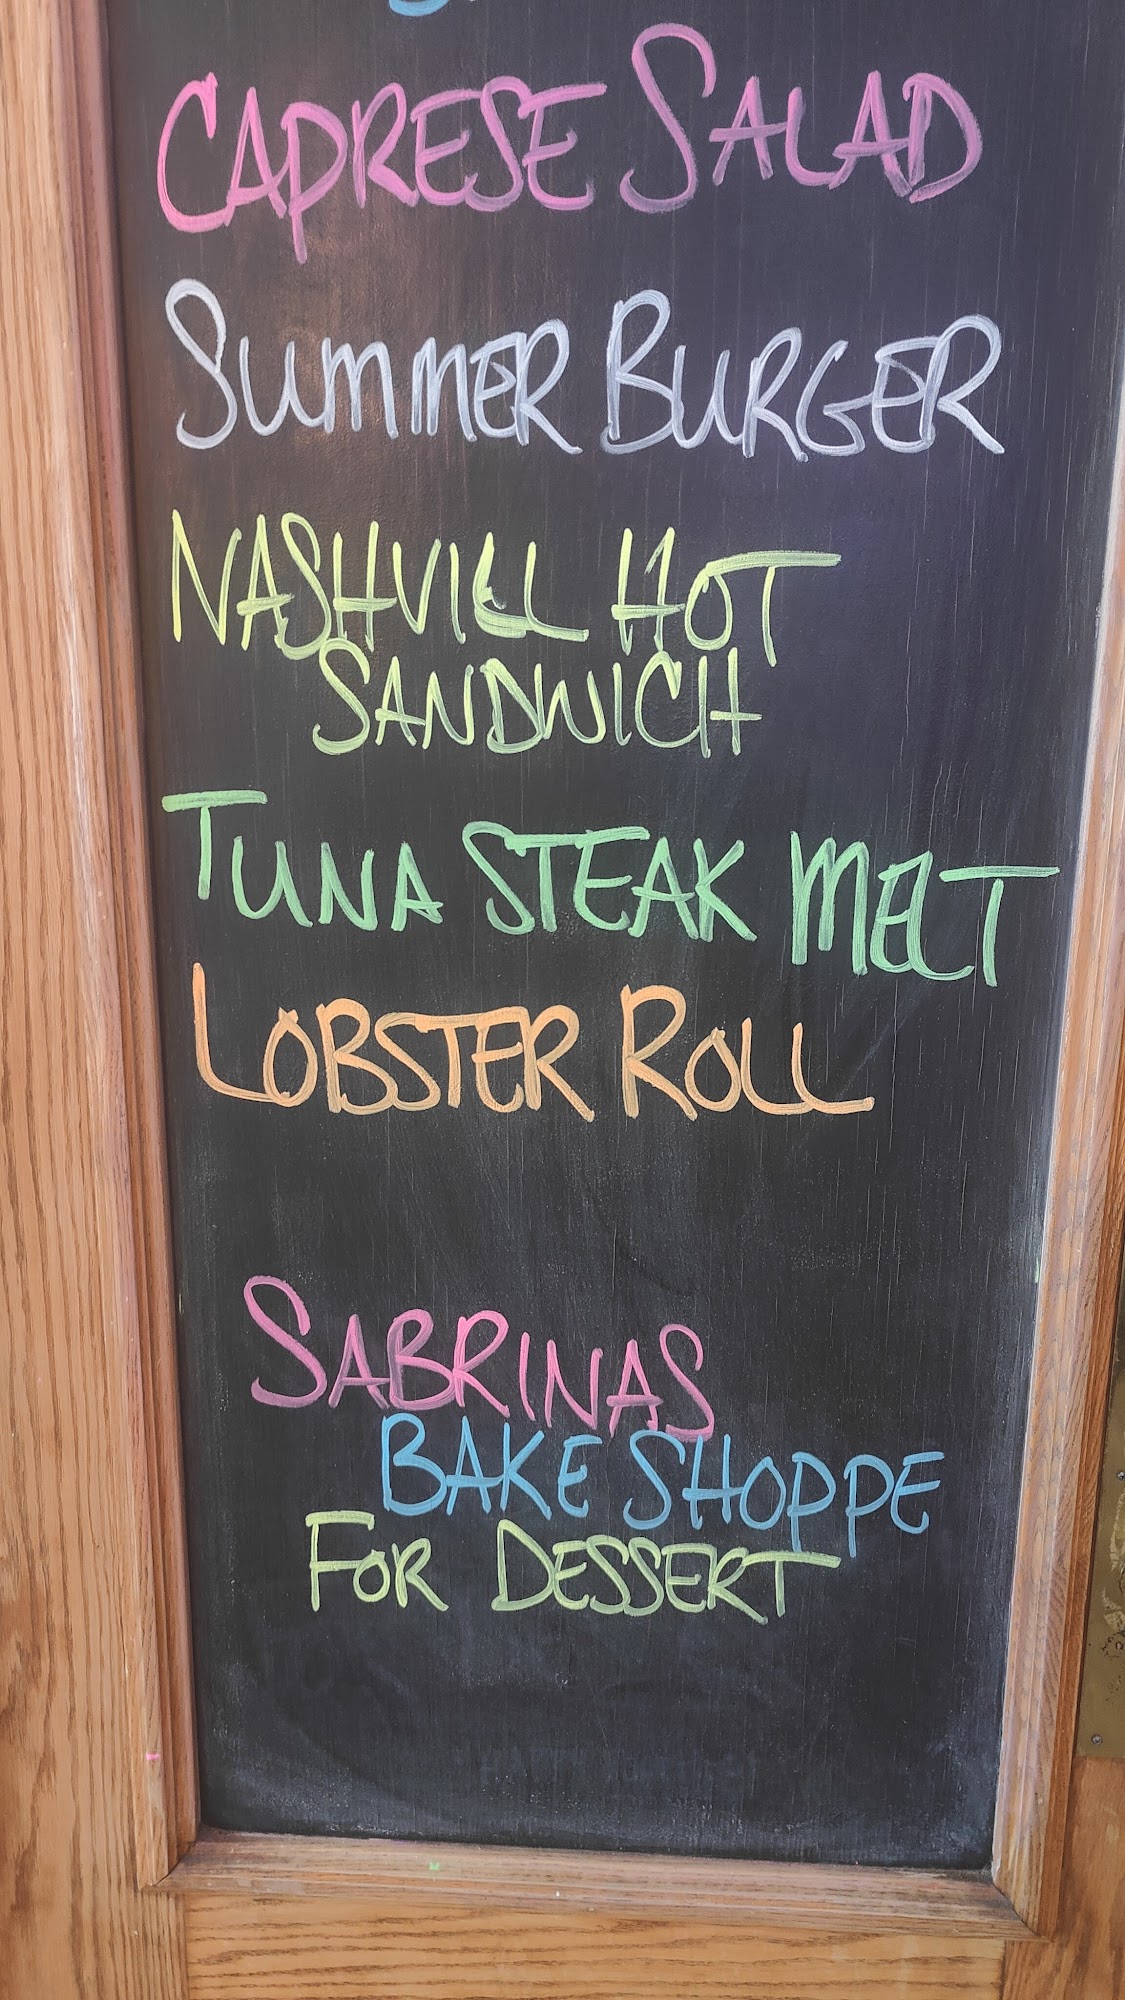 CAPRESE SALAD
SUMMER BURGER
NASHVILL HOT
SANDWICH
TUNA STEAK MELT
LOBSTER ROLL
SABRINAS
BAKE SHOPPE
FOR DESSERT